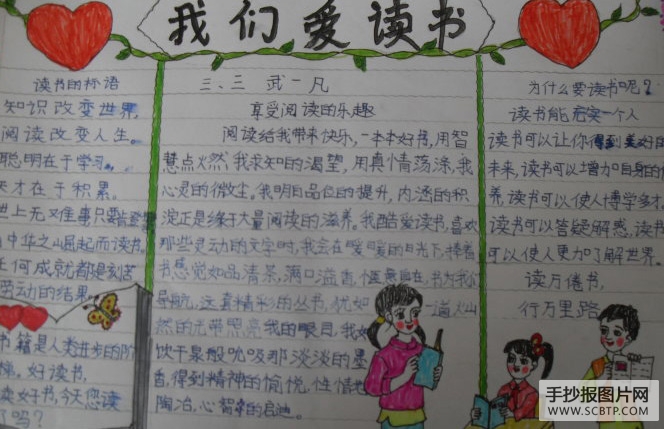 我们爱读书
读书的标语
知识改变世界,
阅读改变人生。
聪明在于学习,
天才在于积累。
世上无难事只要
中华之崛起而读书
任何成就都是刻苦
劳动的结果
书籍是人类进步的阶
梯。好读书,
读好书,今天您读
了吗?
三、三 武一凡
享受阅读的乐趣
阅读给我带来快乐,一本本好书,用智
慧点燃我求知的渴望,用真情荡涤我
心灵的微尘。我明白品位的提升,内涵的积
淀正是缘于大量阅读的滋养。我酷爱读书,喜欢
那些灵动的文字时,我会在暖暖的日光下,捧着
书感觉如品清茶,满口溢香,惬意自在,书为我们
导航,这套精彩的丛书,犹如一道灿
然的光带照亮我的眼目,我如
饮干泉般吮吸那淡淡的墨
香,得到精神的愉悦,性情地
陶冶,心智的启迪。
为什么要读书呢?
读书能充实一个人
读书可以让你得到美好的
未来,读书可以增加自身的修
养,读书可以使人博学多才,
读书可以答疑解惑,读书
可以使人更加了解世界。
读万倦书,
行万里路
手抄报图片网
WWW.SCBTP.COM